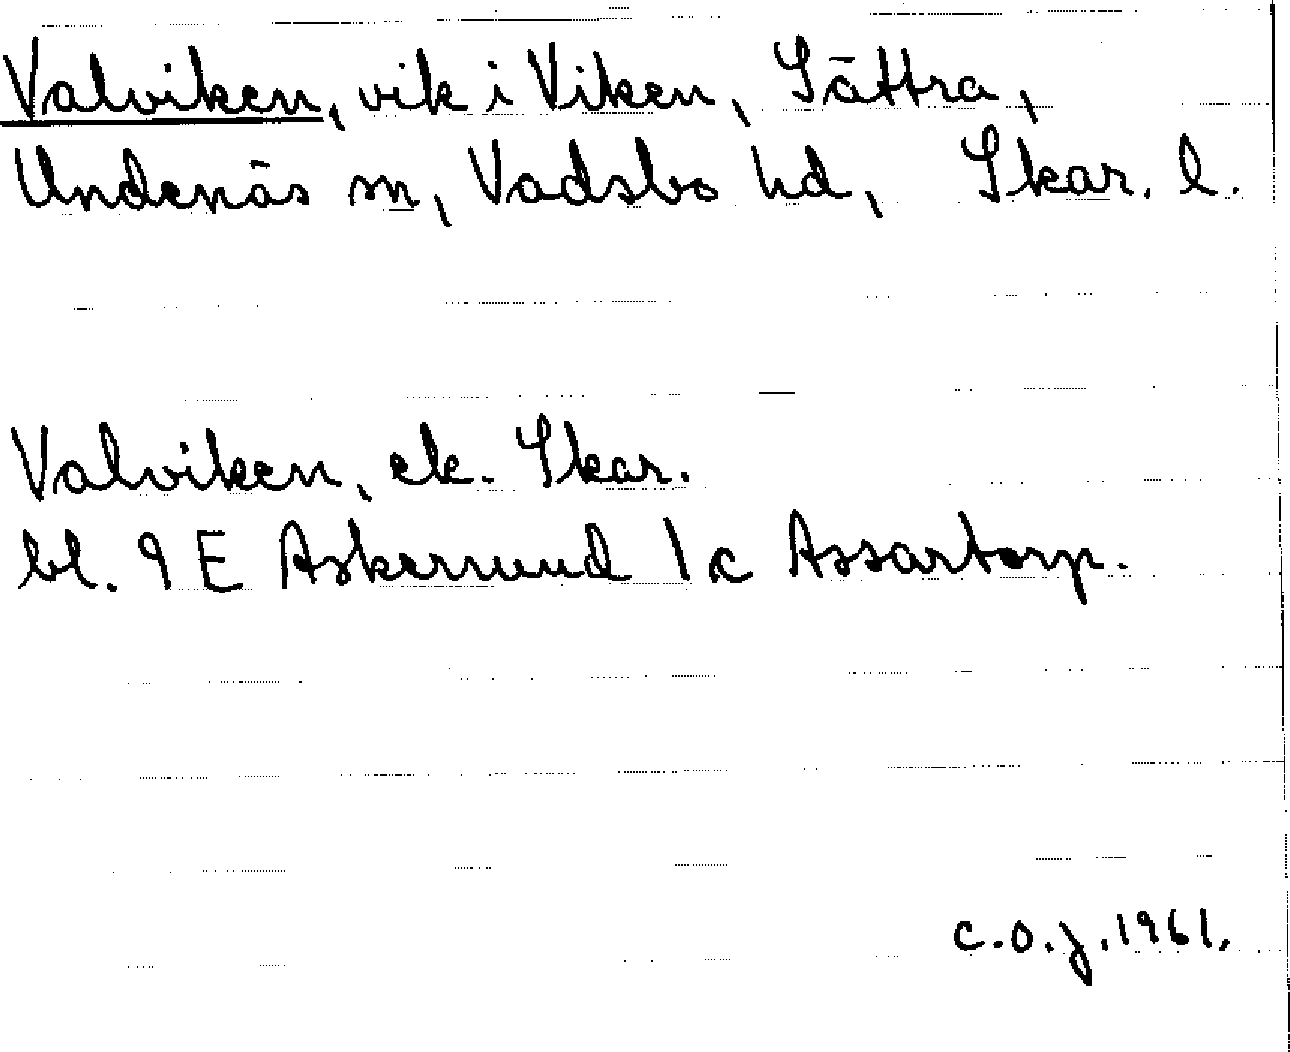 Valviken, vik i Viken, Sättra,
Undenäs sn, Vadsbo hd, Skar. l.
Valviken, ek. Skar.
bl. 9 E Askersund 1 c Assartorp.
C.O.J. 1961.